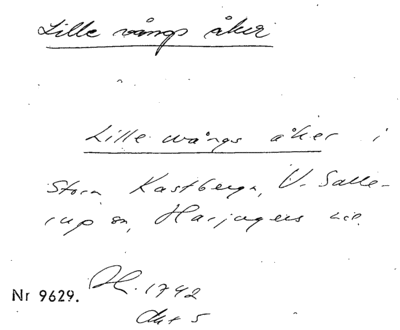 Lille vångs åker
Lille wångs åker i
Stora Kastberga, V. Salle-
rup sn, Harjagers hd.
Nr 9629. LM. 1742
Akt 5